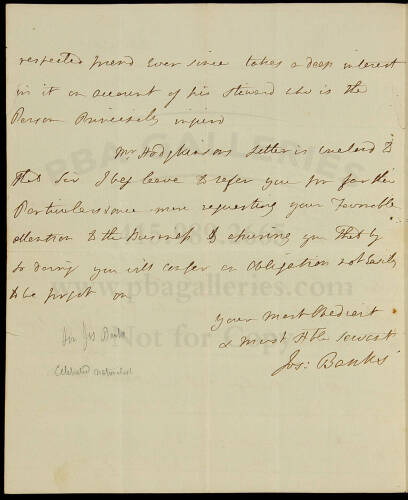 respected friend Ever since takes a deep interest
in it on account of his Steward who is the
Person Principaly injurd
Mr Hodgkinsons Letter is Enclosd to
that Sir I beg leave to refer you for farther
Particulars once more requesting your Favorable
attention to the Business & assuring you that by
so doing you will confer an Obligation not Easily
to be forgot on
Your most Obedient
& most Hble Servant
Jos: Banks
Sir Jos Banks
Celebrated naturalist
PBA GALLERIES
www.pbagalleries.com
Not for Copy